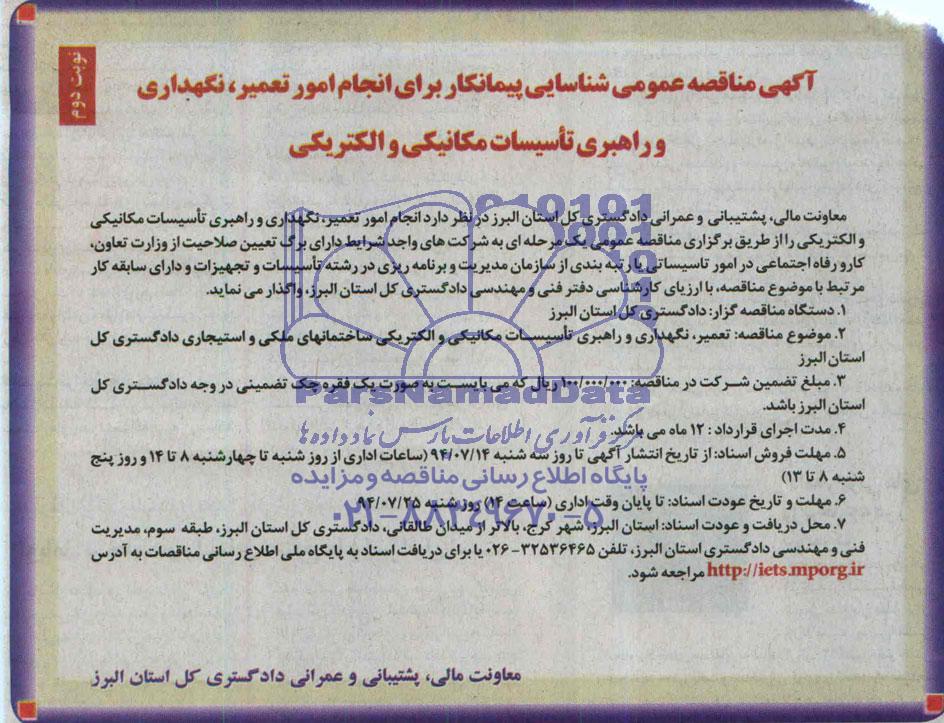 نوبت دوم
آگهی مناقصه عمومی شناسایی پیمانکار برای انجام امور تعمیر، نگهداری
و راهبری تأسیسات مکانیکی و الکتریکی
معاونت مالی، پشتیبانی و عمرانی دادگستری کل استان البرز در نظر دارد انجام امور تعمیر، نگهداری و راهبری تأسیسات مکانیکی
و الکتریکی را از طریق برگزاری مناقصه عمومی یک مرحله ای به شرکت های واجد شرایط دارای برگ تعیین صلاحیت از وزارت تعاون،
کار و رفاه اجتماعی در امور تاسیساتی یا رتبه بندی از سازمان مدیریت و برنامه ریزی در رشته تأسیسات و تجهیزات و دارای سابقه کار
مرتبط با موضوع مناقصه، با ارزیای کارشناسی دفتر فنی و مهندسی دادگستری کل استان البرز، واگذار می نماید.
۱. دستگاه مناقصه گزار: دادگستری کل استان البرز
۲. موضوع مناقصه: تعمیر، نگهداری و راهبری تأسیسات مکانیکی و الکتریکی ساختمانهای ملکی و استیجاری دادگستری کل
استان البرز
۳. مبلغ تضمین شرکت در مناقصه: ۱۰۰/۰۰۰/۰۰۰ ریال که می بایست به صورت یک فقره چک تضمینی در وجه دادگستری کل
استان البرز باشد.
۴. مدت اجرای قرارداد: ۱۲ ماه می باشد.
۵. مهلت فروش اسناد: از تاریخ انتشار آگهی تا روز سه شنبه ۹۴/۰۷/۱۴ (ساعات اداری از روز شنبه تا چهارشنبه ۸ تا ۱۴ و روز پنج
شنبه ۸ تا ۱۳)
۶. مهلت و تاریخ عودت اسناد: تا پایان وقت اداری (ساعت ۱۴) روز شنبه ۹۴/۰۷/۲۵
۷. محل دریافت و عودت اسناد: استان البرز، شهر کرج، بالاتر از میدان طالقانی، دادگستری کل استان البرز، طبقه سوم، مدیریت
فنی و مهندسی دادگستری استان البرز، تلفن ۳۲۵۳۶۴۶۵-۰۲۶ یا برای دریافت اسناد به پایگاه ملی اطلاع رسانی مناقصات به آدرس
http://iets.mporg.ir مراجعه شود.
معاونت مالی، پشتیبانی و عمرانی دادگستری کل استان البرز
ParsNamadData
مرکز فرآوری اطلاعات پارس نماد داده ها
پایگاه اطلاع رسانی مناقصه و مزایده
۰۲۱-۸۸۳۴۹۶۷۰-۵